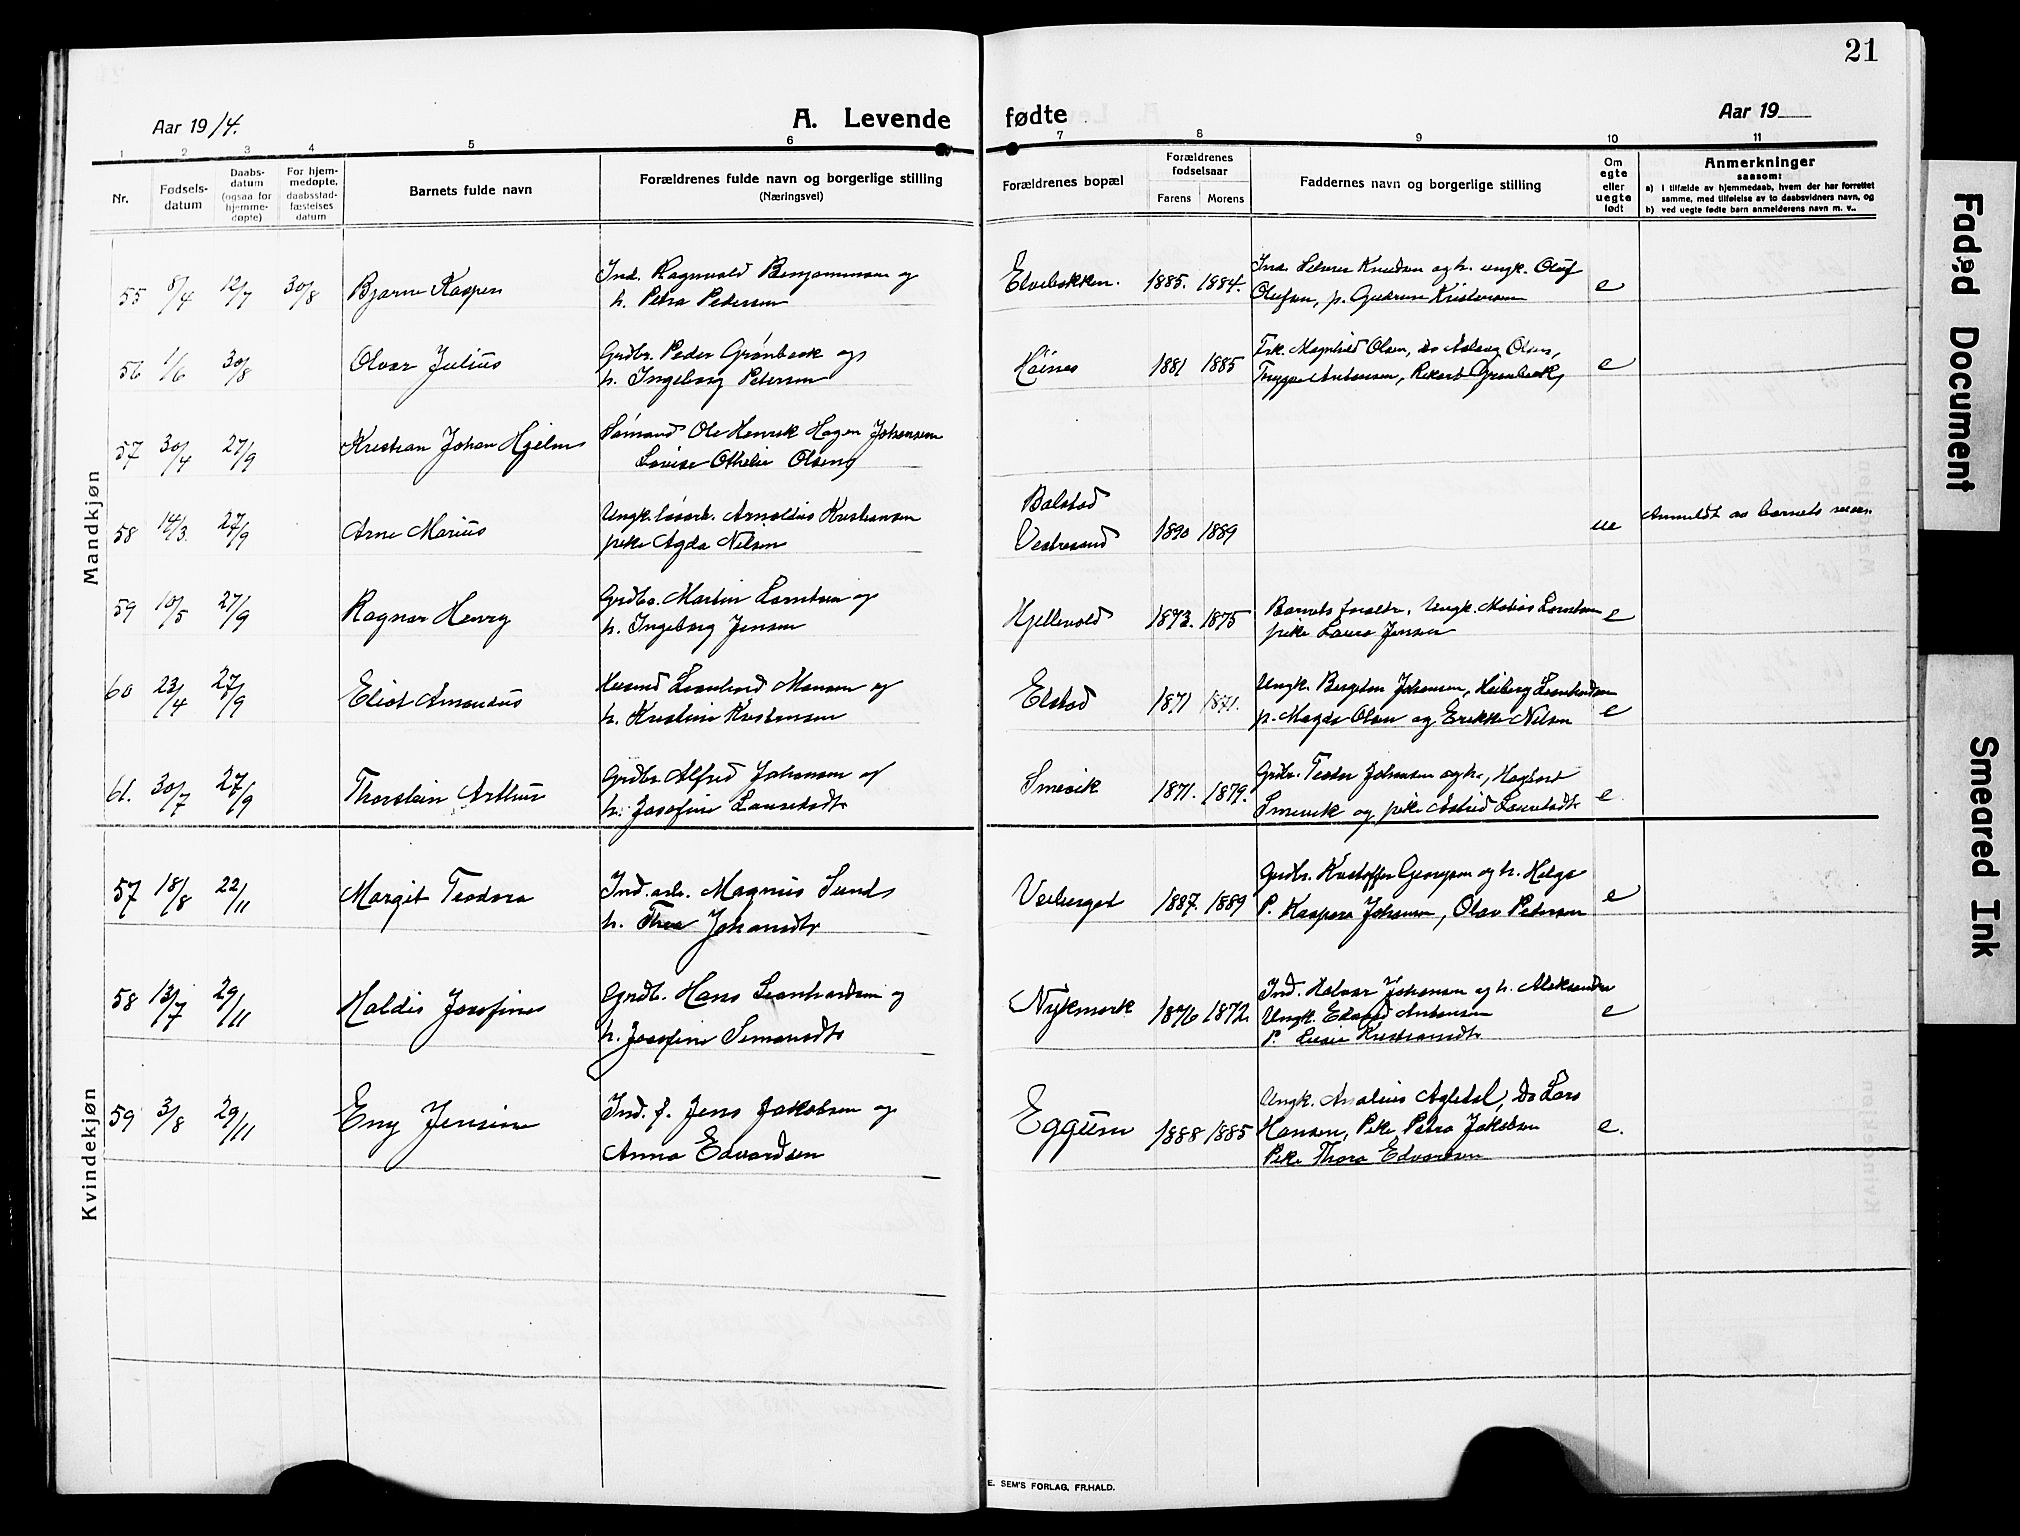 21
Aar 1914.
A. Levende
fødte
Aar 19
1 2 3 4 5 6
7 8 9 10 11
Nr.
Fødsels-
datum
Daabs-
datum
(ogsaa for
hjemme-
døpte)
For hjem-
medøpte,
daabsstad-
fæstelses
datum
Barnets fulde navn
Forældrenes fulde navn og borgerlige stilling
(Næringsvei)
Forældrenes bopæl
Forældrenes
fødselsaar
Farens Morens
Faddernes navn og borgerlige stilling
Om
egte
eller
uegte
født
Anmerkninger
saasom:
a) i tilfælde av hjemmedaab, hvem der har forrettet
samme, med tilføielse av to daabsvidners navn, og
b) ved uegte fødte barn anmelderens navn m. v..
Mandkjøn
55 8/4 12/7 30/8 Bjarne Kasper
Ind. Ragnvald Benjaminsen og
h. Petra Pedersen
Elvebakken. 1885. 1884.
Ind. Knudsen og h. ungk. Oluf
Olufsen, p. Gudrun Kristensen
e
56 1/6 30/8 Olvar Julius
Grdbr. Peder Grønbeck og
h. Ingeborg Petersen
Höines 1881 1885
Frk. Magnhild Olsen, do Aslaug Olsen,
Trygve Antonsen, Rikard Grønbeck,
e
57 30/4 27/9 Kristian Johan Hjelm
Sømand Ole Henrik Hagen Johansen
Lovise Othelie Olsen
58 14/3. 27/9 Arne Marius
Ungk. løsarb. Arnoldus Kristiansen
pike Agda Nilsen
Balstad
Vestresand 1890 1889
ue
Anmeldt av barnets
59 10/5 27/9 Ragnar Henry
Grdbr. Martin Lorntsen og
h. Ingeborg Jensen
Hjellevold 1873. 1875
Barnets foraldr., Ungk. Mobias Lorntsen
pike Laura Jensen
e
60 23/4 27/9 Eliot Amandus
Leonhard Monsen og
h. Kristine Kristensen
Elstad 1871 1871.
Ungk. Bergeton Johansen, Heiberg Leonhardsen
p. Magda Olsen og Erikke Nilsen
e
61. 30/7 27/9 Thorstein Arthur
Grdbr Alfred Johansen og
h. Josefine Lauredsdtr
Smevik 1871. 1879.
Grdbr. Teodor Johansen og h., Hagbart
Smevik og pike Astrid Lauretsdtr
e.
Kvindekjøn
57 18/8 22/11 Margit Teodora
Ind. arb. Magnus Sund
h. Thea Johansdtr
Veiberget 1887. 1889
Grdbr. Kristoffer Georgsen og h. Helga
P. Kaspara Johansen, Olav Petersen
e
58 13/7 29/11 Haldis Josefine
Grdb. Hans Leonhardsen og
h. Josefine Simonsdtr
Nykmark 1876 1872.
Ind. Halvar Johansen og h. Aleksandra
Ungk. Edvard Antonsen
P. Lusie Kristiansdtr
e
59 3/8 29/11 Eny Jensine
Ind. f. Jens Jakobsen og
Anna Edvardsen
Eggum 1888 1885
Ungk. Agledal, Do Lars
Hansen, Pike Petra Jakobsen
Pike Thora Edvardsen
e.
E. SEM'S FORLAG, FR.HALD.
Faded Document
Smeared Ink